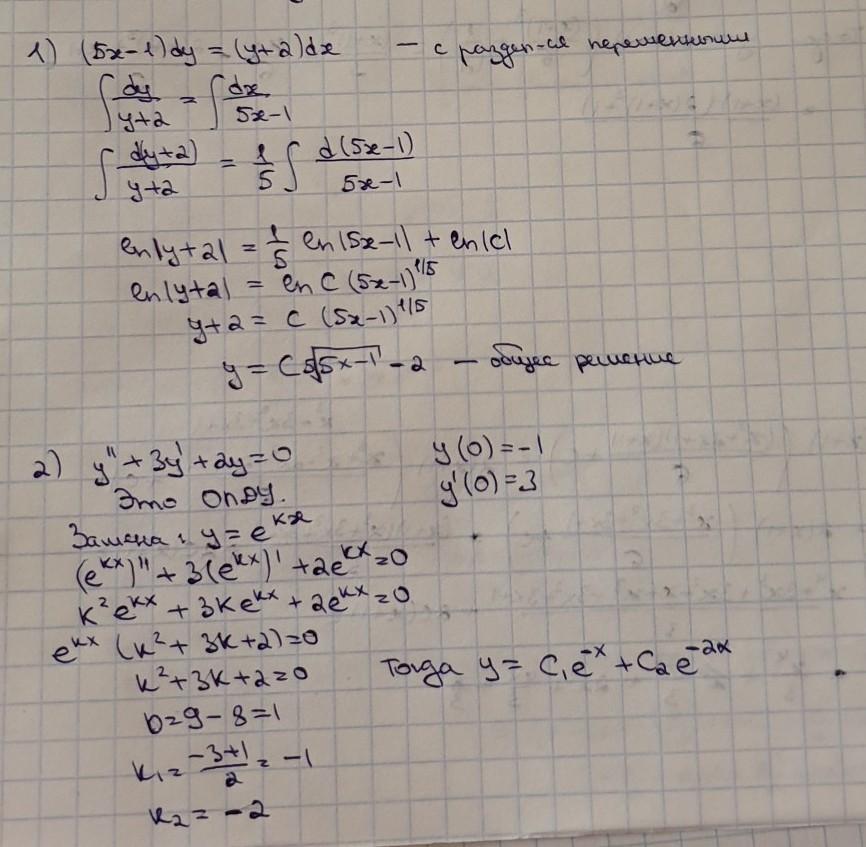 1) (5x-1)dy = (y+2)dx — с раздел-ся переменными
∫ dy/(y+2) = ∫ dx/(5x-1)
∫ d(y+2)/(y+2) = 1/5 ∫ d(5x-1)/(5x-1)
ln|y+2| = 1/5 ln|5x-1| + ln|C|
ln|y+2| = ln C (5x-1)^1/5
y+2 = C (5x-1)^1/5
y = C ⁵√(5x-1) - 2 — общее решение
2) y'' + 3y' + 2y = 0 y(0) = -1
Это ОЛДУ. y'(0) = 3
Замена: y = e^kx
(e^kx)'' + 3(e^kx)' + 2e^kx = 0
k²e^kx + 3ke^kx + 2e^kx = 0
e^kx (k² + 3k + 2) = 0
k² + 3k + 2 = 0 Тогда y = C₁e^-x + C₂e^-2x
D = 9 - 8 = 1
k₁ = (-3+1)/2 = -1
k₂ = -2